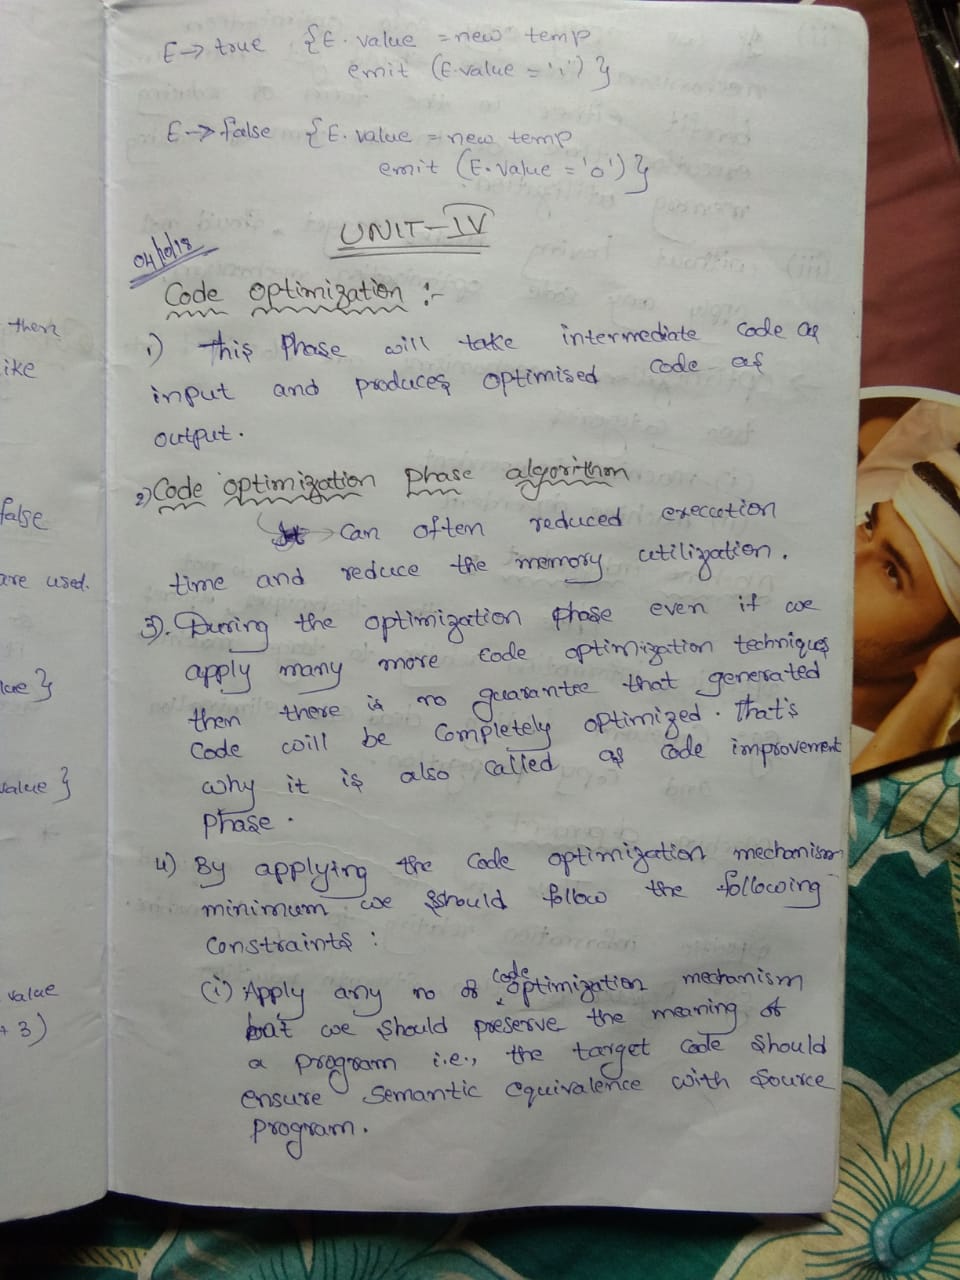 E→ true {E. value = new temp
emit (E.value = '1') }
E→ false {E. value = new temp
emit (E.value = '0') }
04/10/18
UNIT-IV
Code optimization :-
1) This Phase will take intermediate code as
input and produces optimised code as
output.
2) Code optimization Phase algorithm
Can often reduced execution
time and reduce the memory utilization.
3). During the optimization phase even if we
apply many more code optimization techniques
then there is no guarantee that generated
Code will be completely optimized. That's
why it is also called as code improvement
Phase.
4) By applying the code optimization mechanism
minimum we should follow the following
Constraints :
(i) Apply any no of code optimization mechanism
but we should preserve the meaning of
a program i.e., the target code should
ensure semantic equivalence with source
program.
then
ike
false
are used.
lue }
value }
value
+ 3)